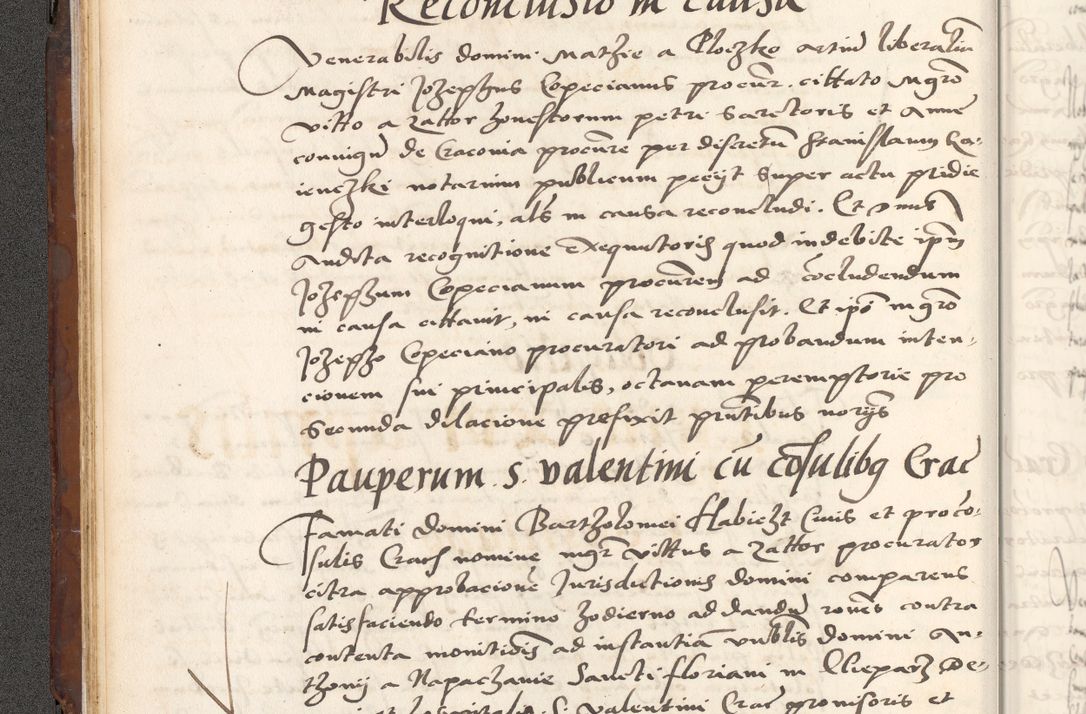 Reconclusio in causa
Venerabilis domini Mathie a Ploczko artiu liberaliu
Magistri Jozephus Copecianus procur. cittato Mgro
Vitto a Zattor honestorum petri Sartoris et Anne
coniugu de Cracovia procure per discretu Stanislaum Ka-
ienczki notarium publicum peciit super actu pridie
gesto interloqui, als in causa reconcludi. Et dnus
Audita recognitione Exequutoris quod in debite ipm
Jozephum Copecianum procurem ad cocludendum
in causa cittavit, in causa reconclusit. Et ipi mgro
Jozepho Copeciano procuratori ad probandum inten-
cionem sui principalis, octavam peremptorie pro
Secunda dilacione prefixit prntibus noriis
Pauperum S. Valentini cu cosulibg Crac
Famati domini Bartholomei Habicht Civis et proco-
sulis Cracs nomine mgr Vittus a Zattor procurator
citra approbacione Jurisdictionis domini comparens
satisfaciendo termino hodierno ad dandu rones contra
contenta monitionis ad instantia vnblis domini An-
thonii a Napachanie Sancti floriani in Clepardz De-
et hospitalis S. Valentini Crac provisoris et